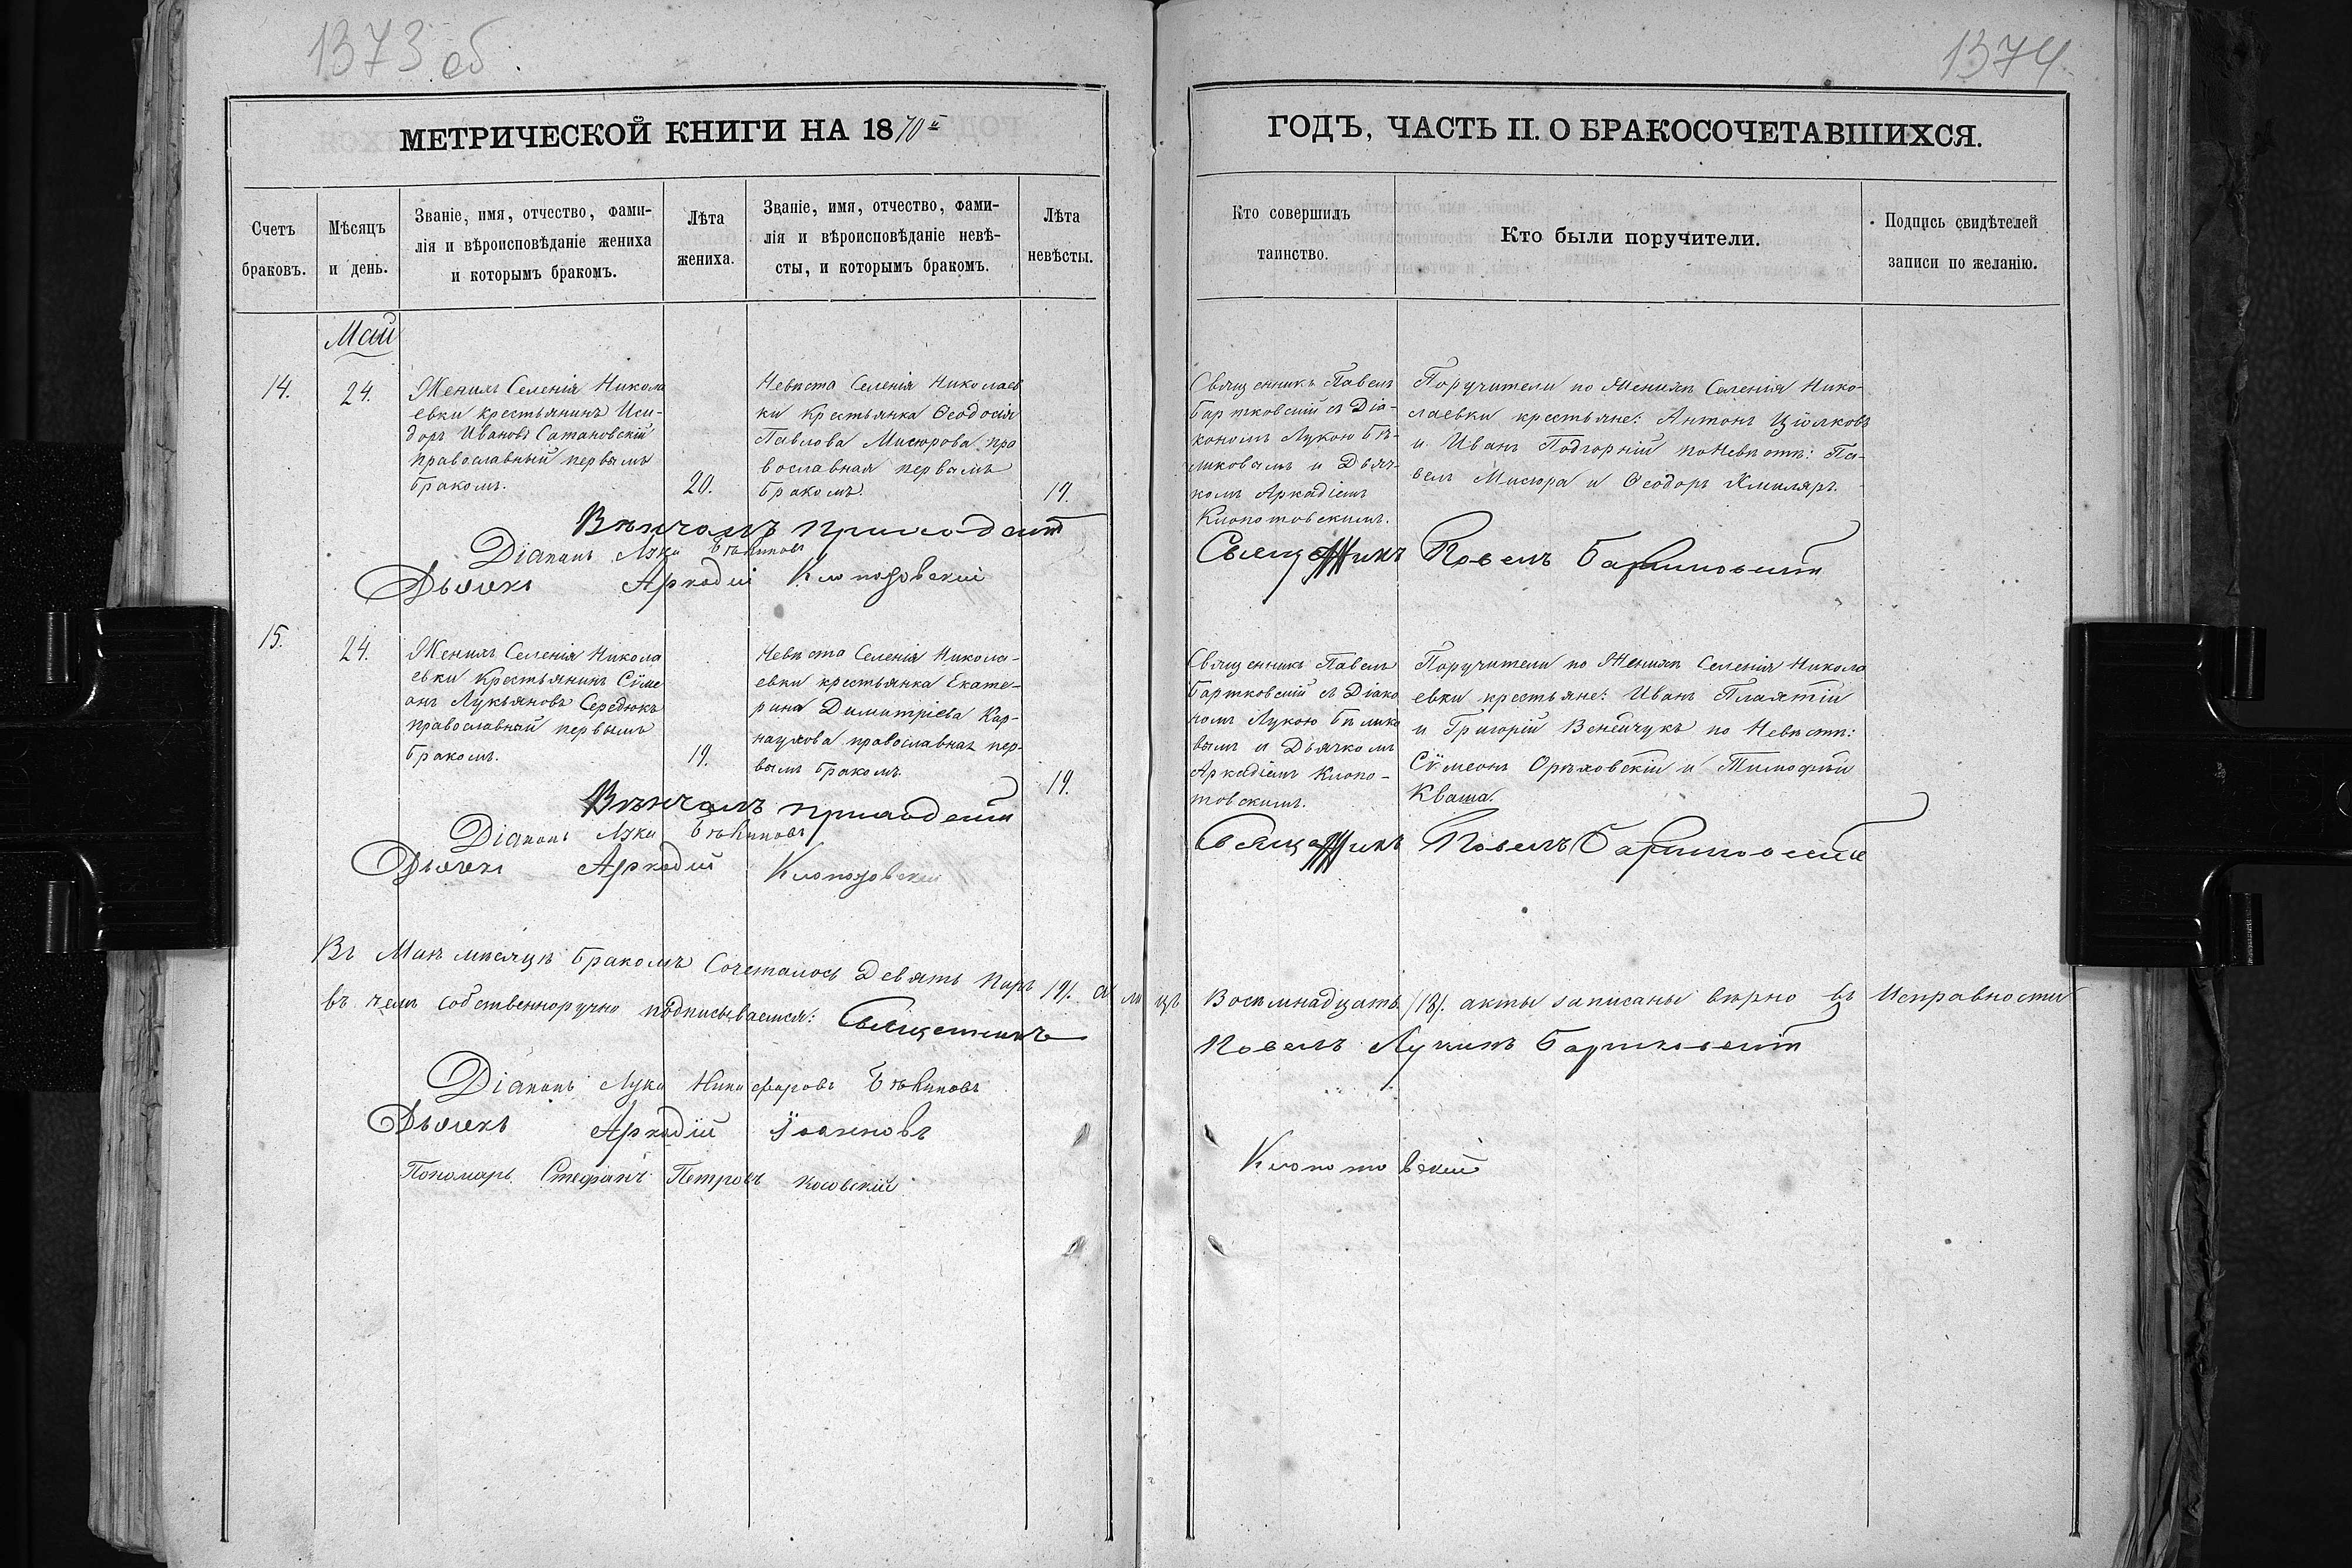 1373 об
1374
МЕТРИЧЕСКОЙ КНИГИ НА 1870й
ГОДЪ, ЧАСТЬ II. О БРАКОСОЧЕТАВШИХСЯ.
Счетъ
браковъ.
Мѣсяцъ
и день.
Званіе, имя, отчество, фами-
лія и вѣроисповѣданіе жениха
и которымъ бракомъ.
Лѣта
жениха.
Званіе, имя, отчество, фами-
лія и вѣроисповѣданіе невѣ-
сты, и которымъ бракомъ.
Лѣта
невѣсты.
Кто совершилъ
таинство.
Кто были поручители.
Подпись свидѣтелей
записи по желанію.
Май
14.
24.
Женихъ Селенія Никола
евки крестьянинъ Иси-
доръ Ивановъ Сатановскій
православный первымъ
бракомъ.
20.
Невѣста Селенія Николаев
ки крестьянка Ѳеодосія
Павлова Мисюрова пра
вославная первымъ
бракомъ.
19.
Священникъ Павелъ
Бартковскій съ Діа-
кономъ Лукою Бѣ-
ликовымъ и Дьяч-
комъ Аркадіемъ
Клопотовскимъ.
Поручители по Женихѣ Селенія Нико-
лаевки крестьяне: Антонъ
и Иванъ Подгорній по Невѣстѣ: Па-
велъ Мисюра и Ѳеодоръ Хмиляръ.
Вѣнчалъ приходскій
Священникъ Павелъ Бартковскій
Діаконъ Лука Бѣликовъ
Дьячекъ Аркадій Клопотовскій
15.
24.
Женихъ Селенія Никола
евки Крестьянинъ Сѵме
онъ Лукьяновъ Середюкъ
православный первымъ
бракомъ.
19.
Невѣста Селенія Никола-
евки крестьянка Екате-
рина Димитріева Кар-
наухова православная пер-
вымъ бракомъ.
19.
Священникъ Павелъ
Бартковскій съ Діако
номъ Лукою Бѣлико
вымъ и Дьячкомъ
Аркадіемъ Клопо-
товскимъ.
Поручители по Женихѣ Селенія Никола
евки крестьяне: Иванъ
и Григорій по Невѣстѣ:
Сѵмеонъ Орѣховскій и Тимофѣй
Кваша.
Вѣнчалъ приходскій
Священникъ Павелъ Бартковскій
Діаконъ Лука Бѣликовъ
Дьячекъ Аркадій Клопотовскій
Въ Маѣ мѣсяцѣ бракомъ Сочеталось Девять паръ /9/. Восьмнадцать /18/. акты записаны вѣрно въ Исправности
въ чемъ собственноручно подписываемся: Священникъ Павелъ Лукинъ Бартковскій
Діаконъ Лука Никифоровъ Бѣликовъ
Дьячекъ Аркадій Іоанновъ Клопотовскій
Пономарь Стефанъ Петровъ Косовскій